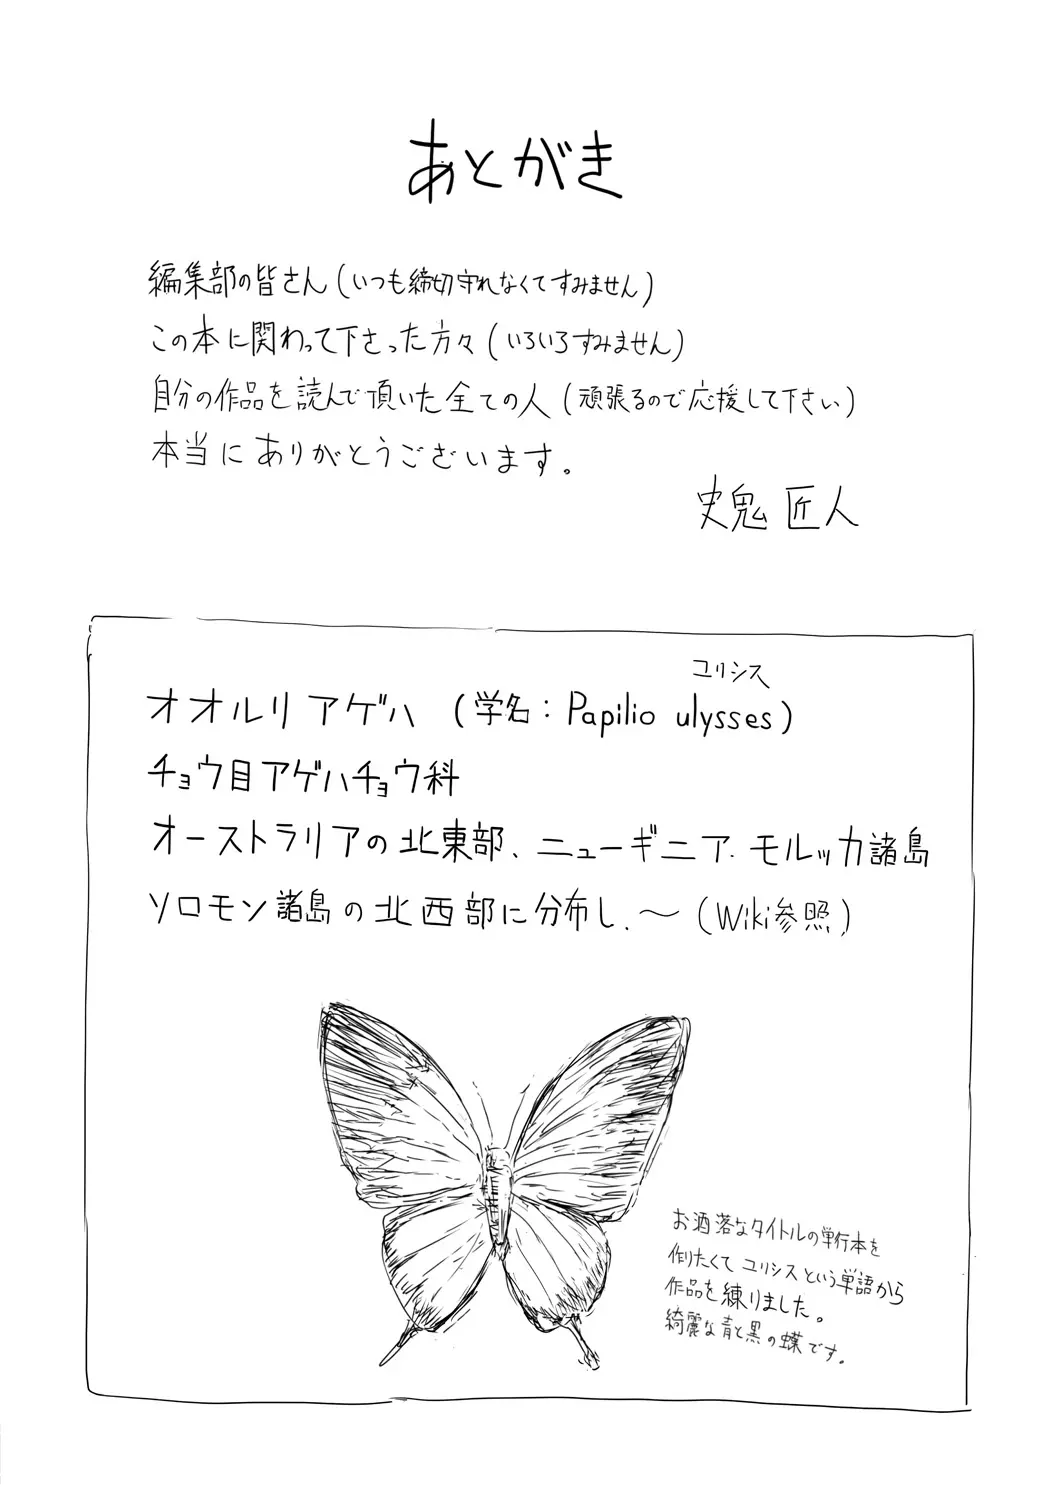 あとがき
編集部の皆さん(いつも締切守れなくてすみません)
この本に関わって下さった方々(いろいろすみません)
自分の作品を読んで頂いた全ての人(頑張るので応援して下さい)
本当にありがとうございます。
史鬼匠人
ユリシス
オオルリアゲハ (学名:Papilio ulysses)
チョウ目アゲハチョウ科
オーストラリアの北東部、ニューギニア、モルッカ諸島
ソロモン諸島の北西部に分布し、〜(Wiki参照)
お洒落なタイトルの単行本を
作りたくてユリシスという単語から
作品を練りました。
綺麗な青と黒の蝶です。